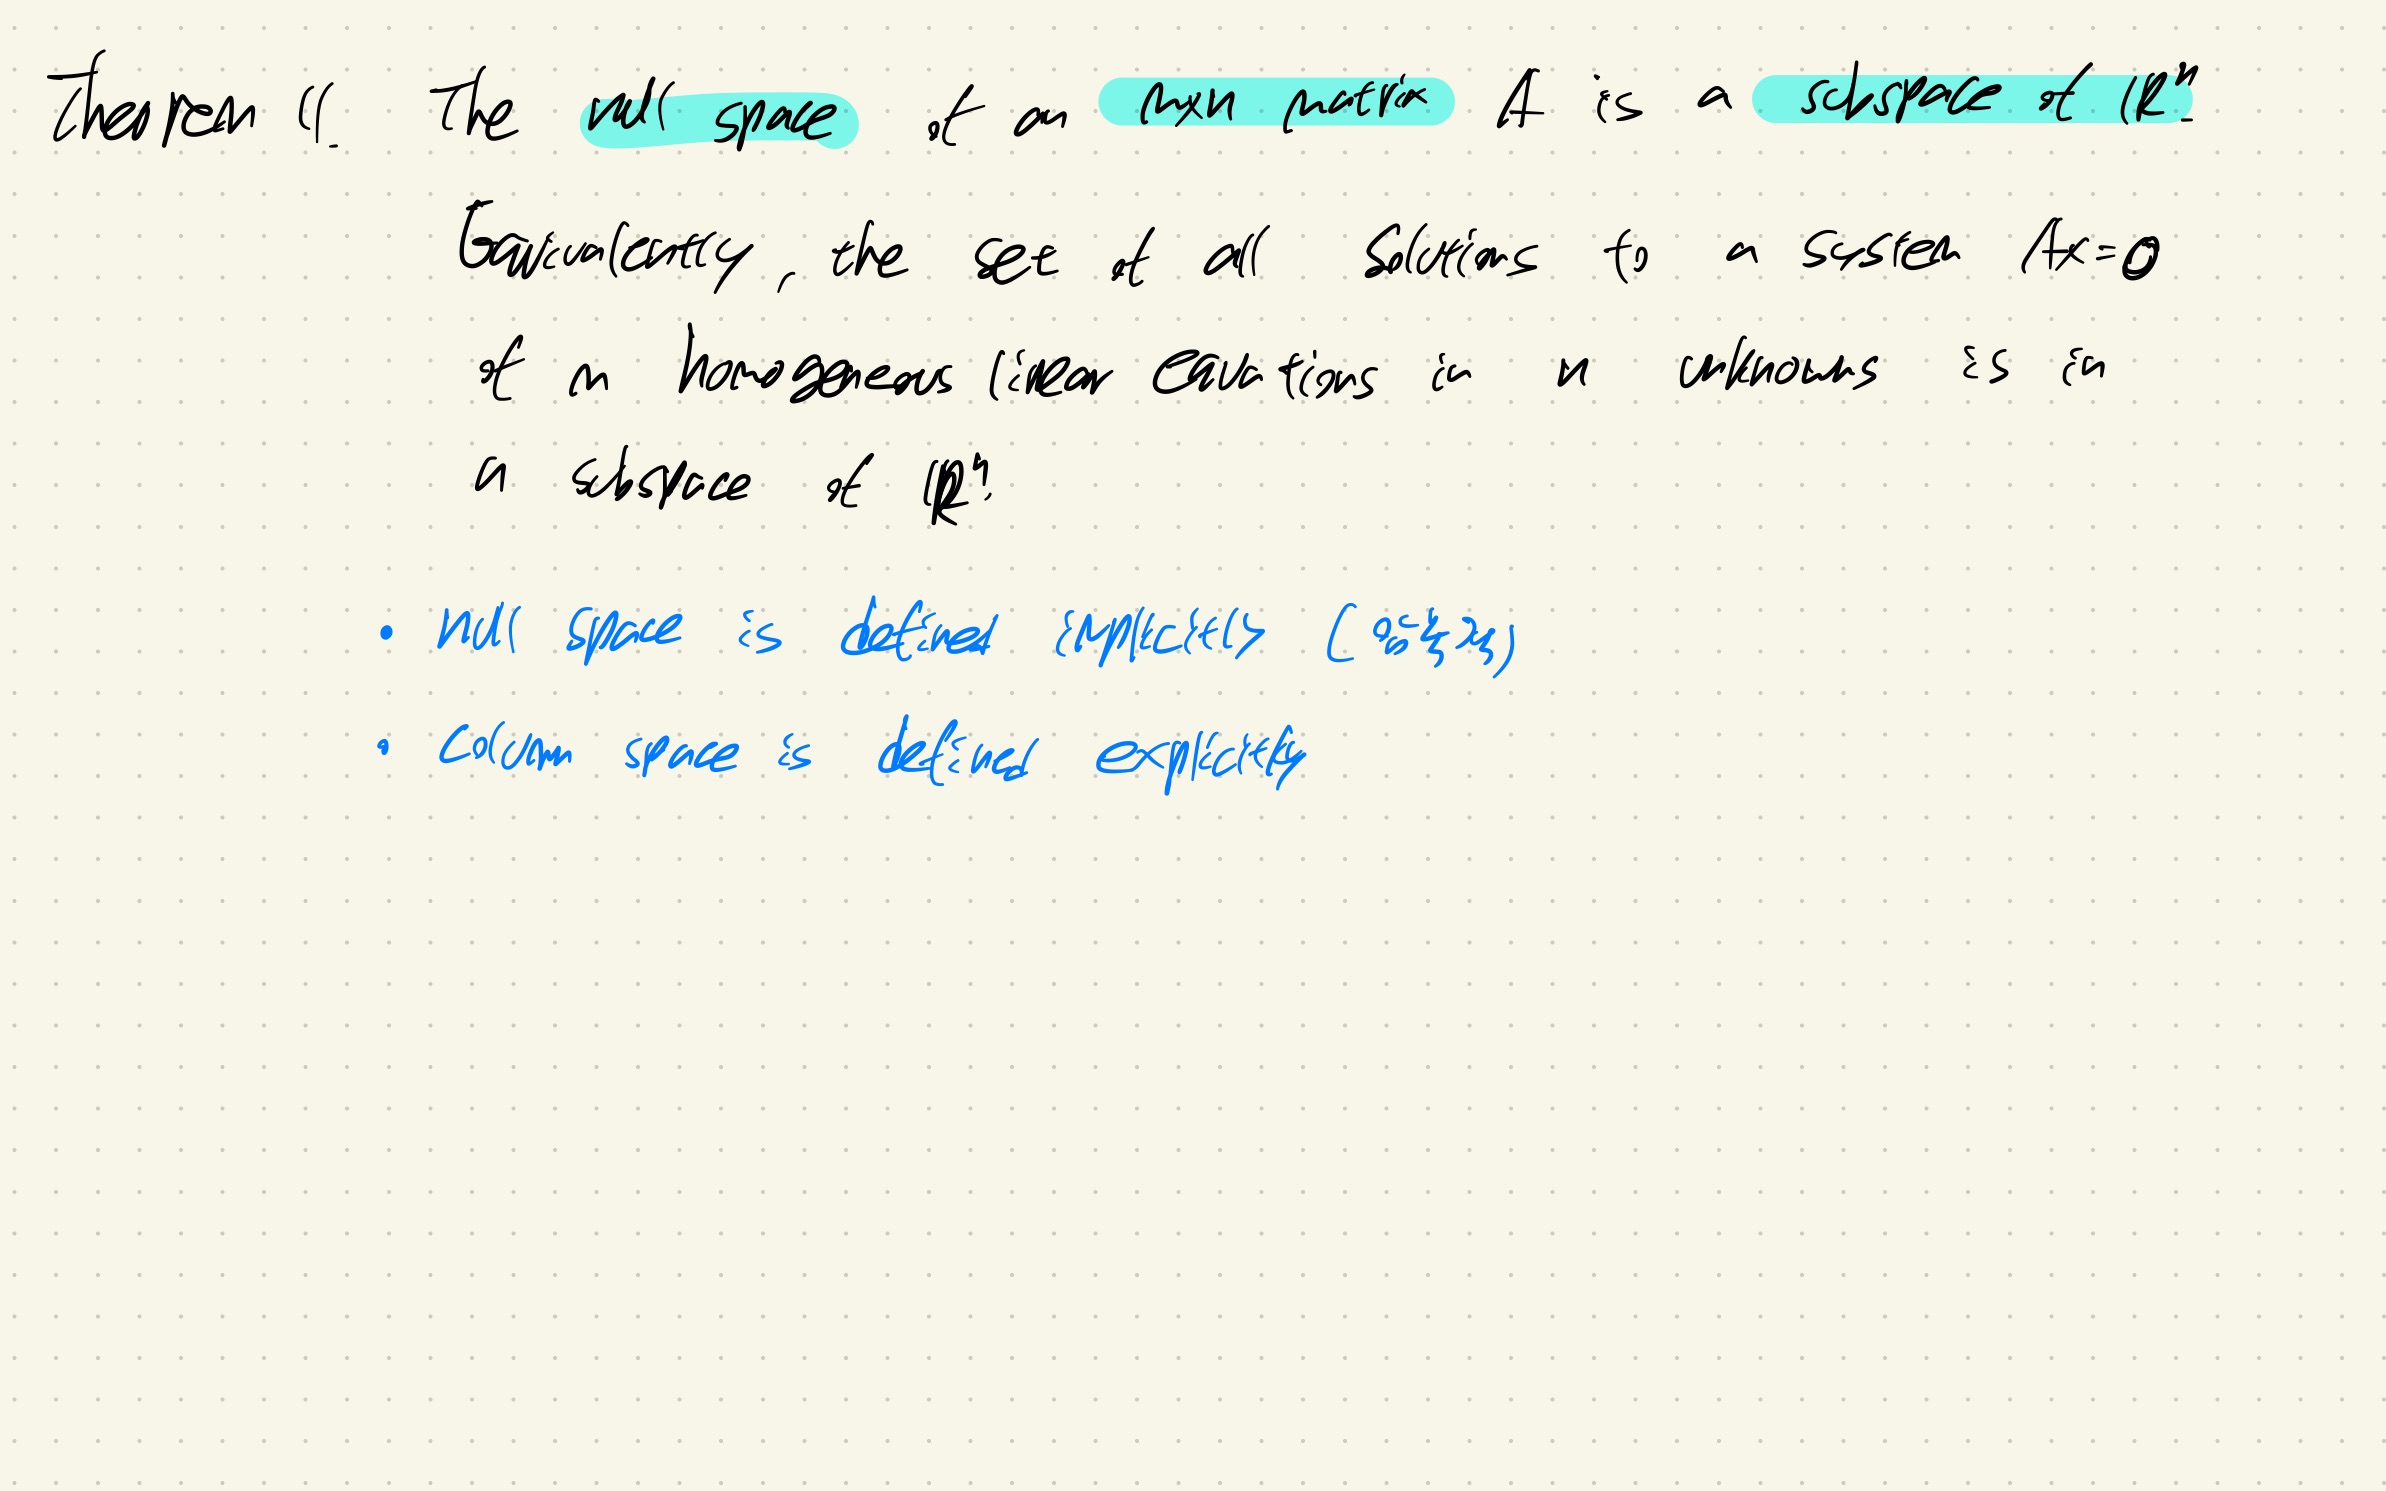 Theorem 11. The null space of an m×n matrix A is a subspace of ℝⁿ
Equivalently, the set of all solutions to a system Ax=0
of m homogeneous linear equations in n unknowns is in
a subspace of ℝⁿ.
• Null space is defined implicitly
• Column space is defined explicitly